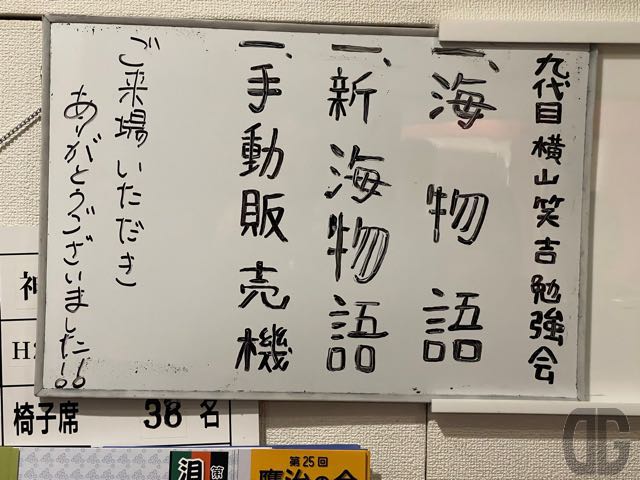 九代目 横山笑吉 勉強会
一、海物語
一、新海物語
一、手動販売機
ご来場いただき
ありがとうございました!!
神
椅子席 38名
第25回